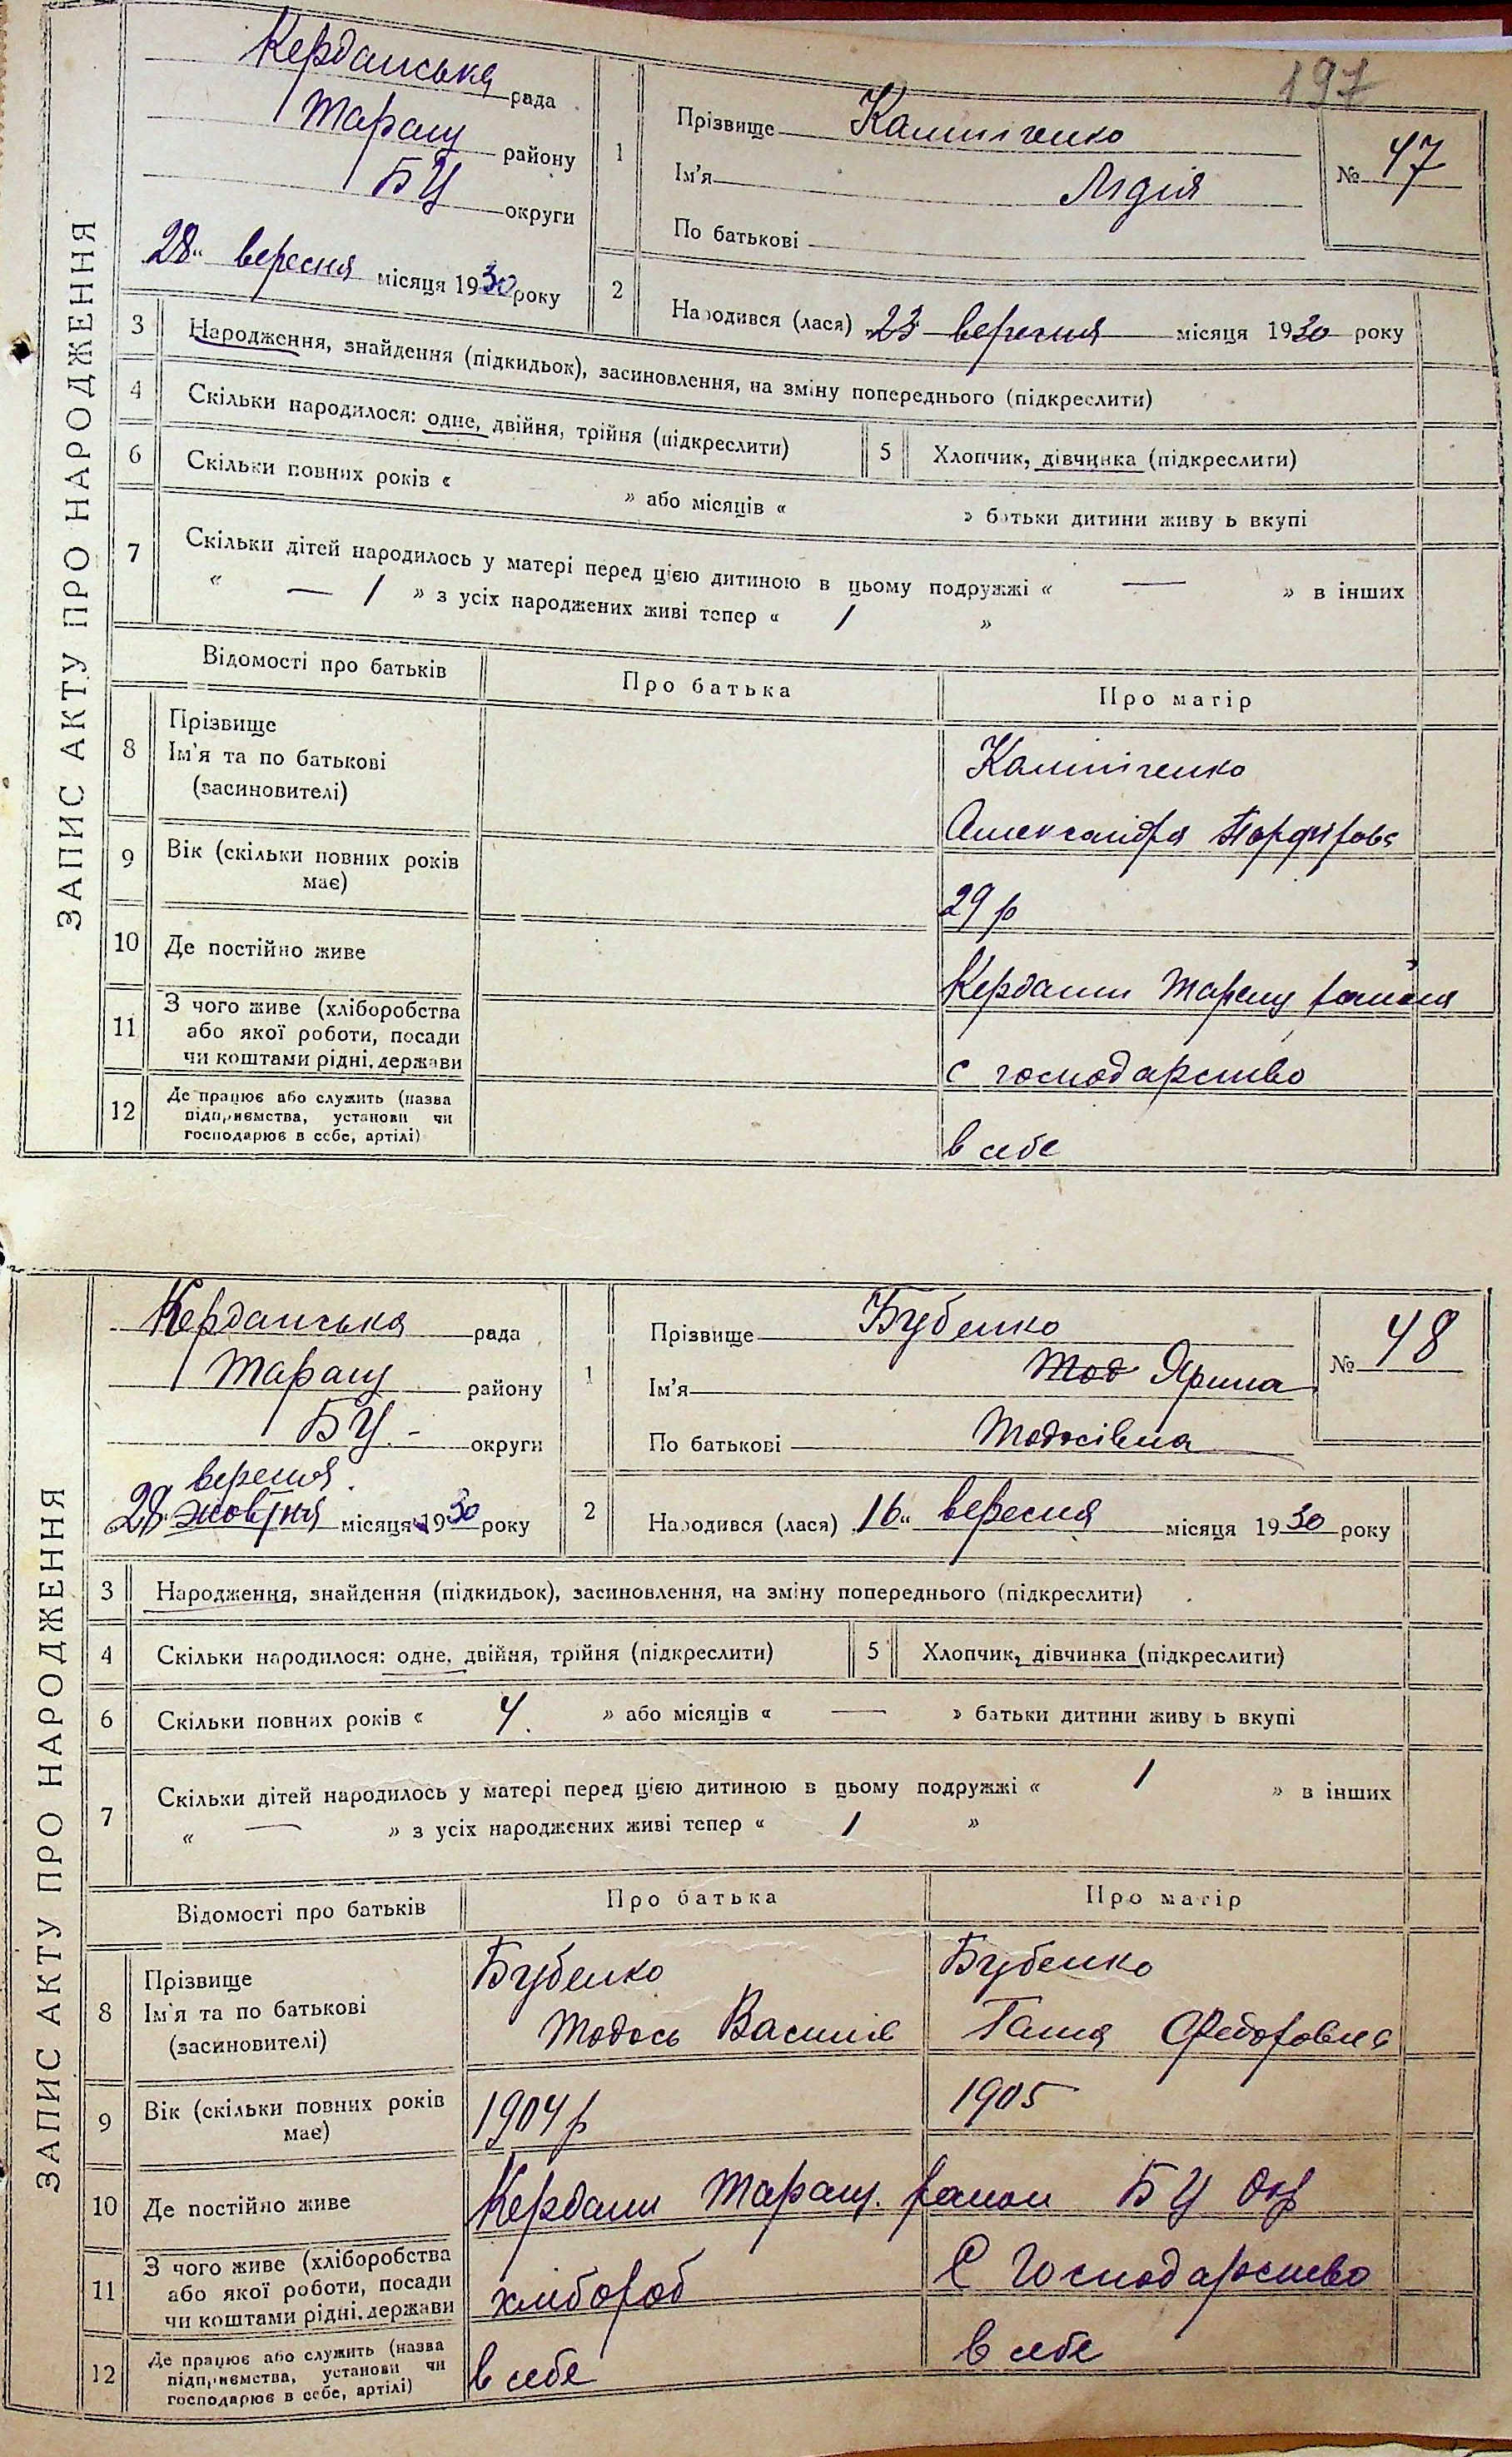 197
ЗАПИС АКТУ ПРО НАРОДЖЕННЯ
Керданська рада
Таращ району
БЦ округи
28" вересня місяця 1930 року
1 Прізвище Калініченко
Ім'я Лідія
По батькові
№ 47
2 Народився (лася) 23 вересня місяця 1930 року
3 Народження, знайдення (підкидьок), засиновлення, на зміну попереднього (підкреслити)
4 Скільки народилося: одне, двійня, трійня (підкреслити) 5 Хлопчик, дівчинка (підкреслити)
6 Скільки повних років « » або місяців « » батьки дитини живу ь вкупі
7 Скільки дітей народилось у матері перед цією дитиною в цьому подружжі « — » в інших
« — 1 » з усіх народжених живі тепер « 1 »
Відомості про батьків Про батька Про матір
8 Прізвище
Ім'я та по батькові
(засиновителі)
Калініченко
Александра Порфірова
9 Вік (скільки повних років має)
29 р
10 Де постійно живе
Кердани Таращ района
11 З чого живе (хліборобства
або якої роботи, посади
чи коштами рідні, держави
с господарство
12 Де працює або служить (назва
підприємства, установи чи
господарює в себе, артілі)
в себе
ЗАПИС АКТУ ПРО НАРОДЖЕННЯ
Керданська рада
Таращ району
БЦ. - округи
вересня
28" жовтня місяця 1930 року
1 Прізвище Бубенко
Ім'я Тод Ярина
По батькові Тодосівна
№ 48
2 Народився (лася) 16" вересня місяця 1930 року
3 Народження, знайдення (підкидьок), засиновлення, на зміну попереднього (підкреслити)
4 Скільки народилося: одне, двійня, трійня (підкреслити) 5 Хлопчик, дівчинка (підкреслити)
6 Скільки повних років « 4. » або місяців « — » батьки дитини живу ь вкупі
7 Скільки дітей народилось у матері перед цією дитиною в цьому подружжі « 1 » в інших
« — » з усіх народжених живі тепер « 1 »
Відомості про батьків Про батька Про матір
8 Прізвище
Ім'я та по батькові
(засиновителі)
Бубенко Бубенко
Тодось Василів Ганя Федоровна
9 Вік (скільки повних років має)
1904 р 1905
10 Де постійно живе
Кердани Таращ. район БЦ Окр
11 З чого живе (хліборобства
або якої роботи, посади
чи коштами рідні, держави
хлібороб С Господарство
12 Де працює або служить (назва
підприємства, установи чи
господарює в себе, артілі)
в себе в себе